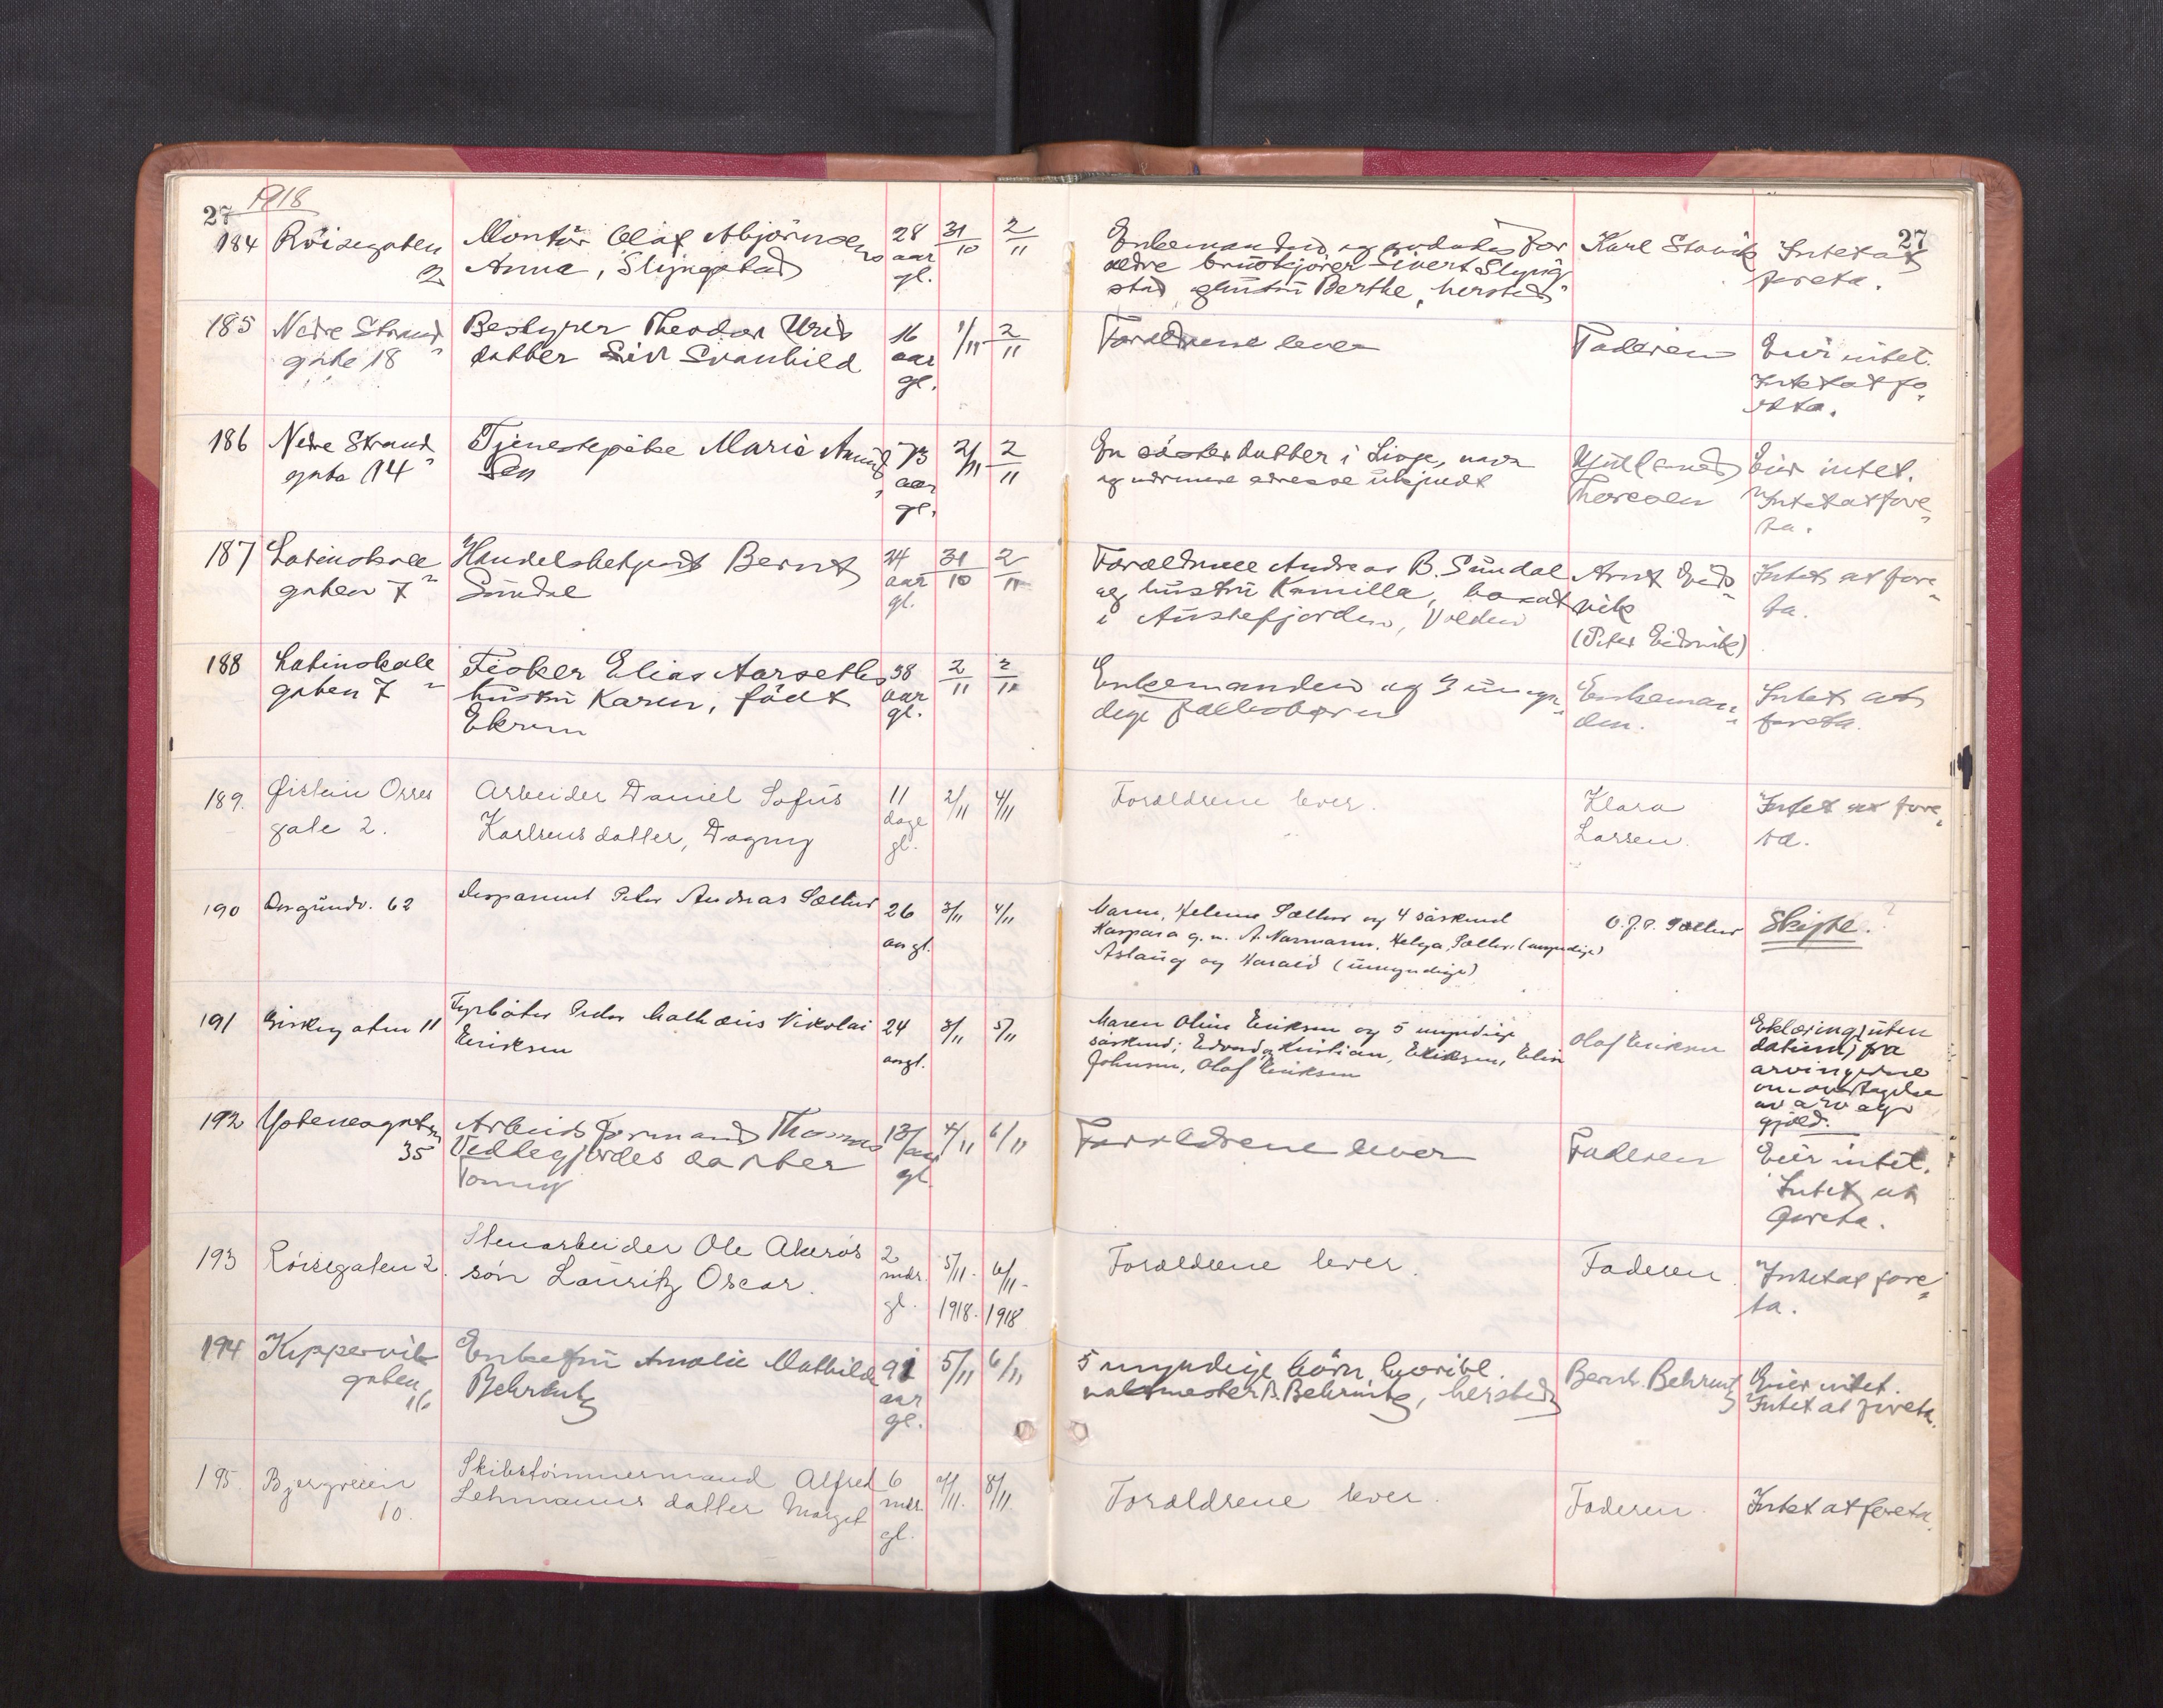 1918
27
27
184 Röisegaten 2 Montör Olaf Abjörnsens
Anna, Slyngstad 28 aar gl. 31/10 2/11
Enkemanden og avdødes for
ældre bruskjörer Sivert Slyng
stad hustru Berthe, hersteds Karl Stavik Intet at
foreta.
185 Nedre Strand
gate 18 Bestyrer Theodor Urid
datter Siv Svanhild 16 aar gl. 1/11 2/11
Forældrene lever Faderen Eier intet.
Intet at fo
reta.
186 Nedre Strand
gate 14 Tjenestepike Marie Amund
sen 73 aar gl. 2/11 2/11
En sösterdatter i Linge, navn
og nærmere adresse ukjendt
Thoresen Eier intet.
Intet at fore
ta.
187 Latinskole
gaten 7 Handelsbetjent Bernt
Sundal 24 aar gl. 31/10 2/11
Forældrene Andreas B. Sundal
og hustru Kamilla, bosat
i Austefjorden, Volden Arnt Eids
vik
(Peter Eidsvik) Intet at fore
ta.
188 Latinskole
gaten 7 Fisker Elias Aarseths
hustru Karen, födt
Ekrem 38 aar gl. 2/11 2/11
Enkemanden og 3 umyn
dige fællesbørn Enkeman
den. Intet at
foreta.
189. Øistein Orres
gate 2. Arbeider Daniel Sofus
Karlsens datter, Dagny 11 dage gl. 2/11 4/11
Forældrene lever. Klara
Larsen. Intet at fore
ta.
190 62 Peter Andreas Sætter 26 aar gl. 3/11 4/11
Maren, Helene Sætter og 4 söskend
Kaspara g. m. A. Normann, Helga Sætter (umyndige)
Aslaug og Harald (umyndige) O.J.P. Sætter Skifte. ?
191 Giskegaten 11 Fyrböter Peder Mathæus Nikolai
Eriksen 24 aar gl. 3/11 5/11
Maren Oline Eriksen og 5 myndige
söskend; Edvard, Kristian, Eriksen, Elin
Johnsen, Olaf Eriksen Olaf Eriksen Erklæring (uten
datum) fra
arvingerne
om overtagelse
av arv og
gjeld.
192 35 Arbeidsformand Thomas
Vedlegjerdes datter
Tonny 13/ aar gl. 4/11 6/11
Forældrene lever Faderen Eier intet.
Intet at
foreta.
193 Röisegaten 2. Stenarbeider Ole Akerös
sön Lauritz Oscar. 2 mdr. gl. 5/11. 1918. 6/11. 1918
Forældrene lever. Faderen. Intet at fore
ta.
194 Kippervik
gaten
16 Enkefru Amalie Mathilde
Behrentz 91 aar gl. 5/11 6/11
5 myndige börn, hvoribl.
vaktmester B. Behrentz, hersteds Bernh. Behrentz Eier intet.
Intet at foreta.
195. Bjergveien
10. Skibstömmermand Alfred
Lehmanns datter Margit 6 mdr. gl. 7/11. 8/11.
Forældrene lever. Faderen. Intet at foreta.